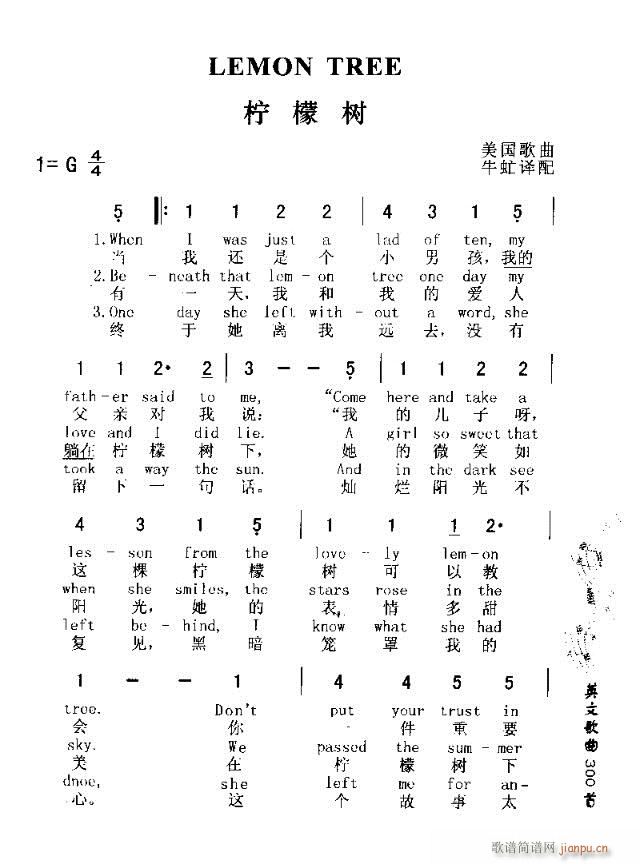 LEMON TREE
柠檬树
1=G 4/4
美国歌曲
牛虹译配
5 1 1 2 2 4 3 1 5
1.When I was just a lad of ten, my
当 我 还 是 个 小 男 孩, 我的
2.Be - neath that lem - on tree one day my
有 一 天, 我 和 我 的 爱 人
3.One day she left with - out a word, she
终 于 她 离 我 远 去, 没 有
1 1 2· 2 3 - - 5 1 1 2 2
fath-er said to me, "Come here and take a
父 亲 对 我 说: "我 的 儿 子 呀,
love and I did lie. A girl so sweet that
躺在 柠 檬 树 下, 她 的 微 笑 如
took a way the sun. And in the dark see
留 下 一 句 话。 灿 烂 阳 光 不
4 3 1 5 1 1 1 2·
les - son from the love - ly lem-on
这 棵 柠 檬 树 可 以 教
when she smiles, the stars rose in the
阳 光, 她 的 表 情 多 甜
left be - hind, I know what she had
复 见, 黑 暗 笼 罩 我 的
1 - - 1 4 4 5 5
tree. Don't put your trust in
会 你 一 件 重 要
sky. We passed the sum - mer
美 在 柠 檬 树 下
dnoe, she left me for an-
心。 这 个 故 事 太
英文歌曲300首
歌谱简谱网 jianpu.cn